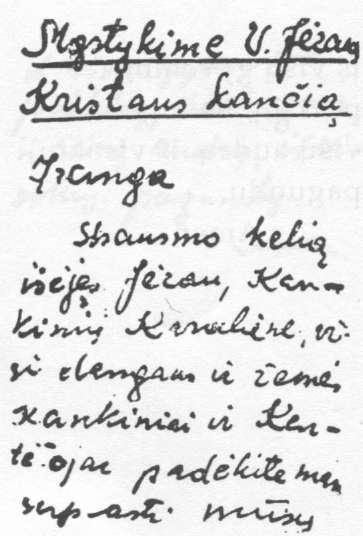 Mąstykime V. Jėzaus
Kristaus kančią
Įžanga
Skausmo kelią
išėjęs Jėzau, Kan-
kinių Karaliene, vi-
si dangaus ir žemės
kankiniai ir Ken-
tėtojai padėkite man
suprasti mūsų